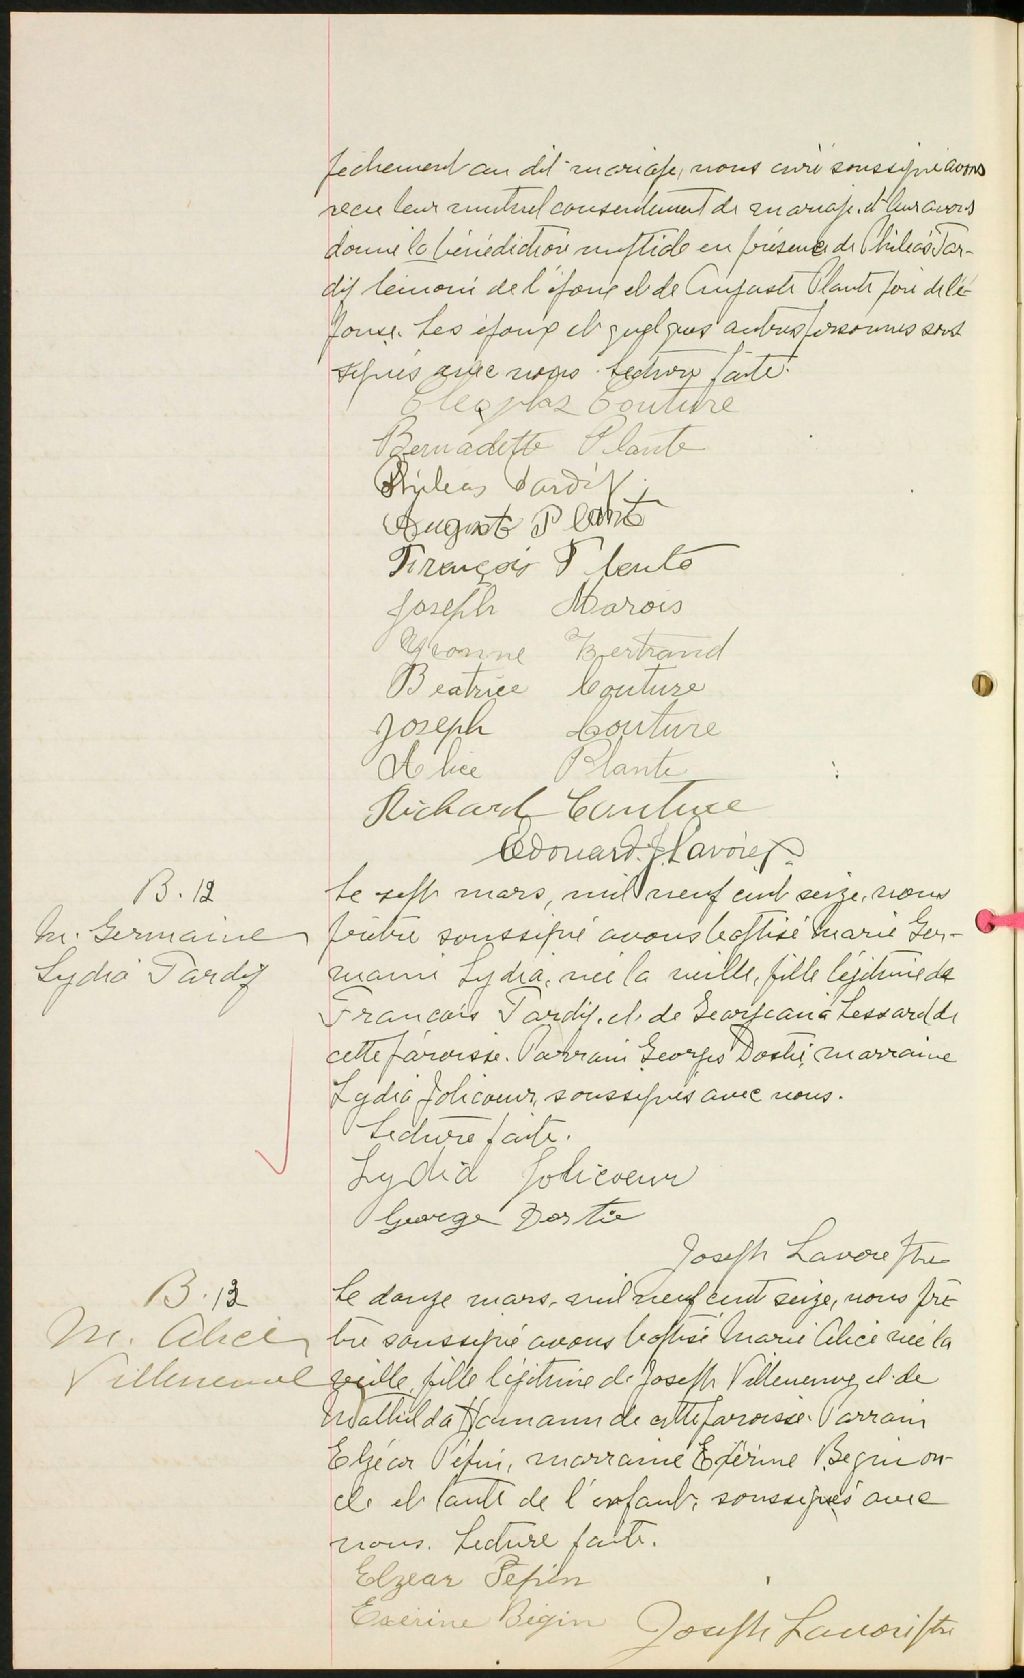 pêchement au dit mariage, nous curé soussigné avons
reçu leur mutuel consentement de mariage et leur avons
donné la bénédiction nuptiale en présence de Philéas Tar-
dif témoin de l'époux et de Auguste Plante père de l'é-
pouse. Les époux et quelques autres personnes sont
signés avec nous. Lecture faite.
Cléophas Couture
Bernadette Plante
Philéas Tardif
Auguste Plante
François Plante
Joseph Marois
Yvonne Bertrand
Beatrice Couture
Joseph Couture
Alice Plante
Richard Couture
Edouard J. Lavoie ptr.
B. 12
M. Germaine
Lydia Tardif
Le sept mars, mil neuf cent seize, nous
prêtre soussigné avons baptisé Marie Ger-
maine Lydia, née la veille, fille légitime de
François Tardif, et de Georgeana Lessard de
cette paroisse. Parrain Georges Dostie, marraine
Lydia Jolicoeur, soussignés avec nous.
Lecture faite.
Lydia Jolicoeur
George Dostie
Joseph Lavoie ptre
B. 13
M. Alice
Villeneuve
Le douze mars, mil neuf cent seize, nous prê-
tre soussigné avons baptisé Marie Alice née la
veille, fille légitime de Joseph Villeneuve et de
Mathilda Hamann de cette paroisse. Parrain
Elzéar Pépin, marraine Exérine Begin on-
cle et tante de l'enfant, soussignés avec
nous. Lecture faite.
Elzear Pepin
Exerine Bégin Joseph Lavoie ptre